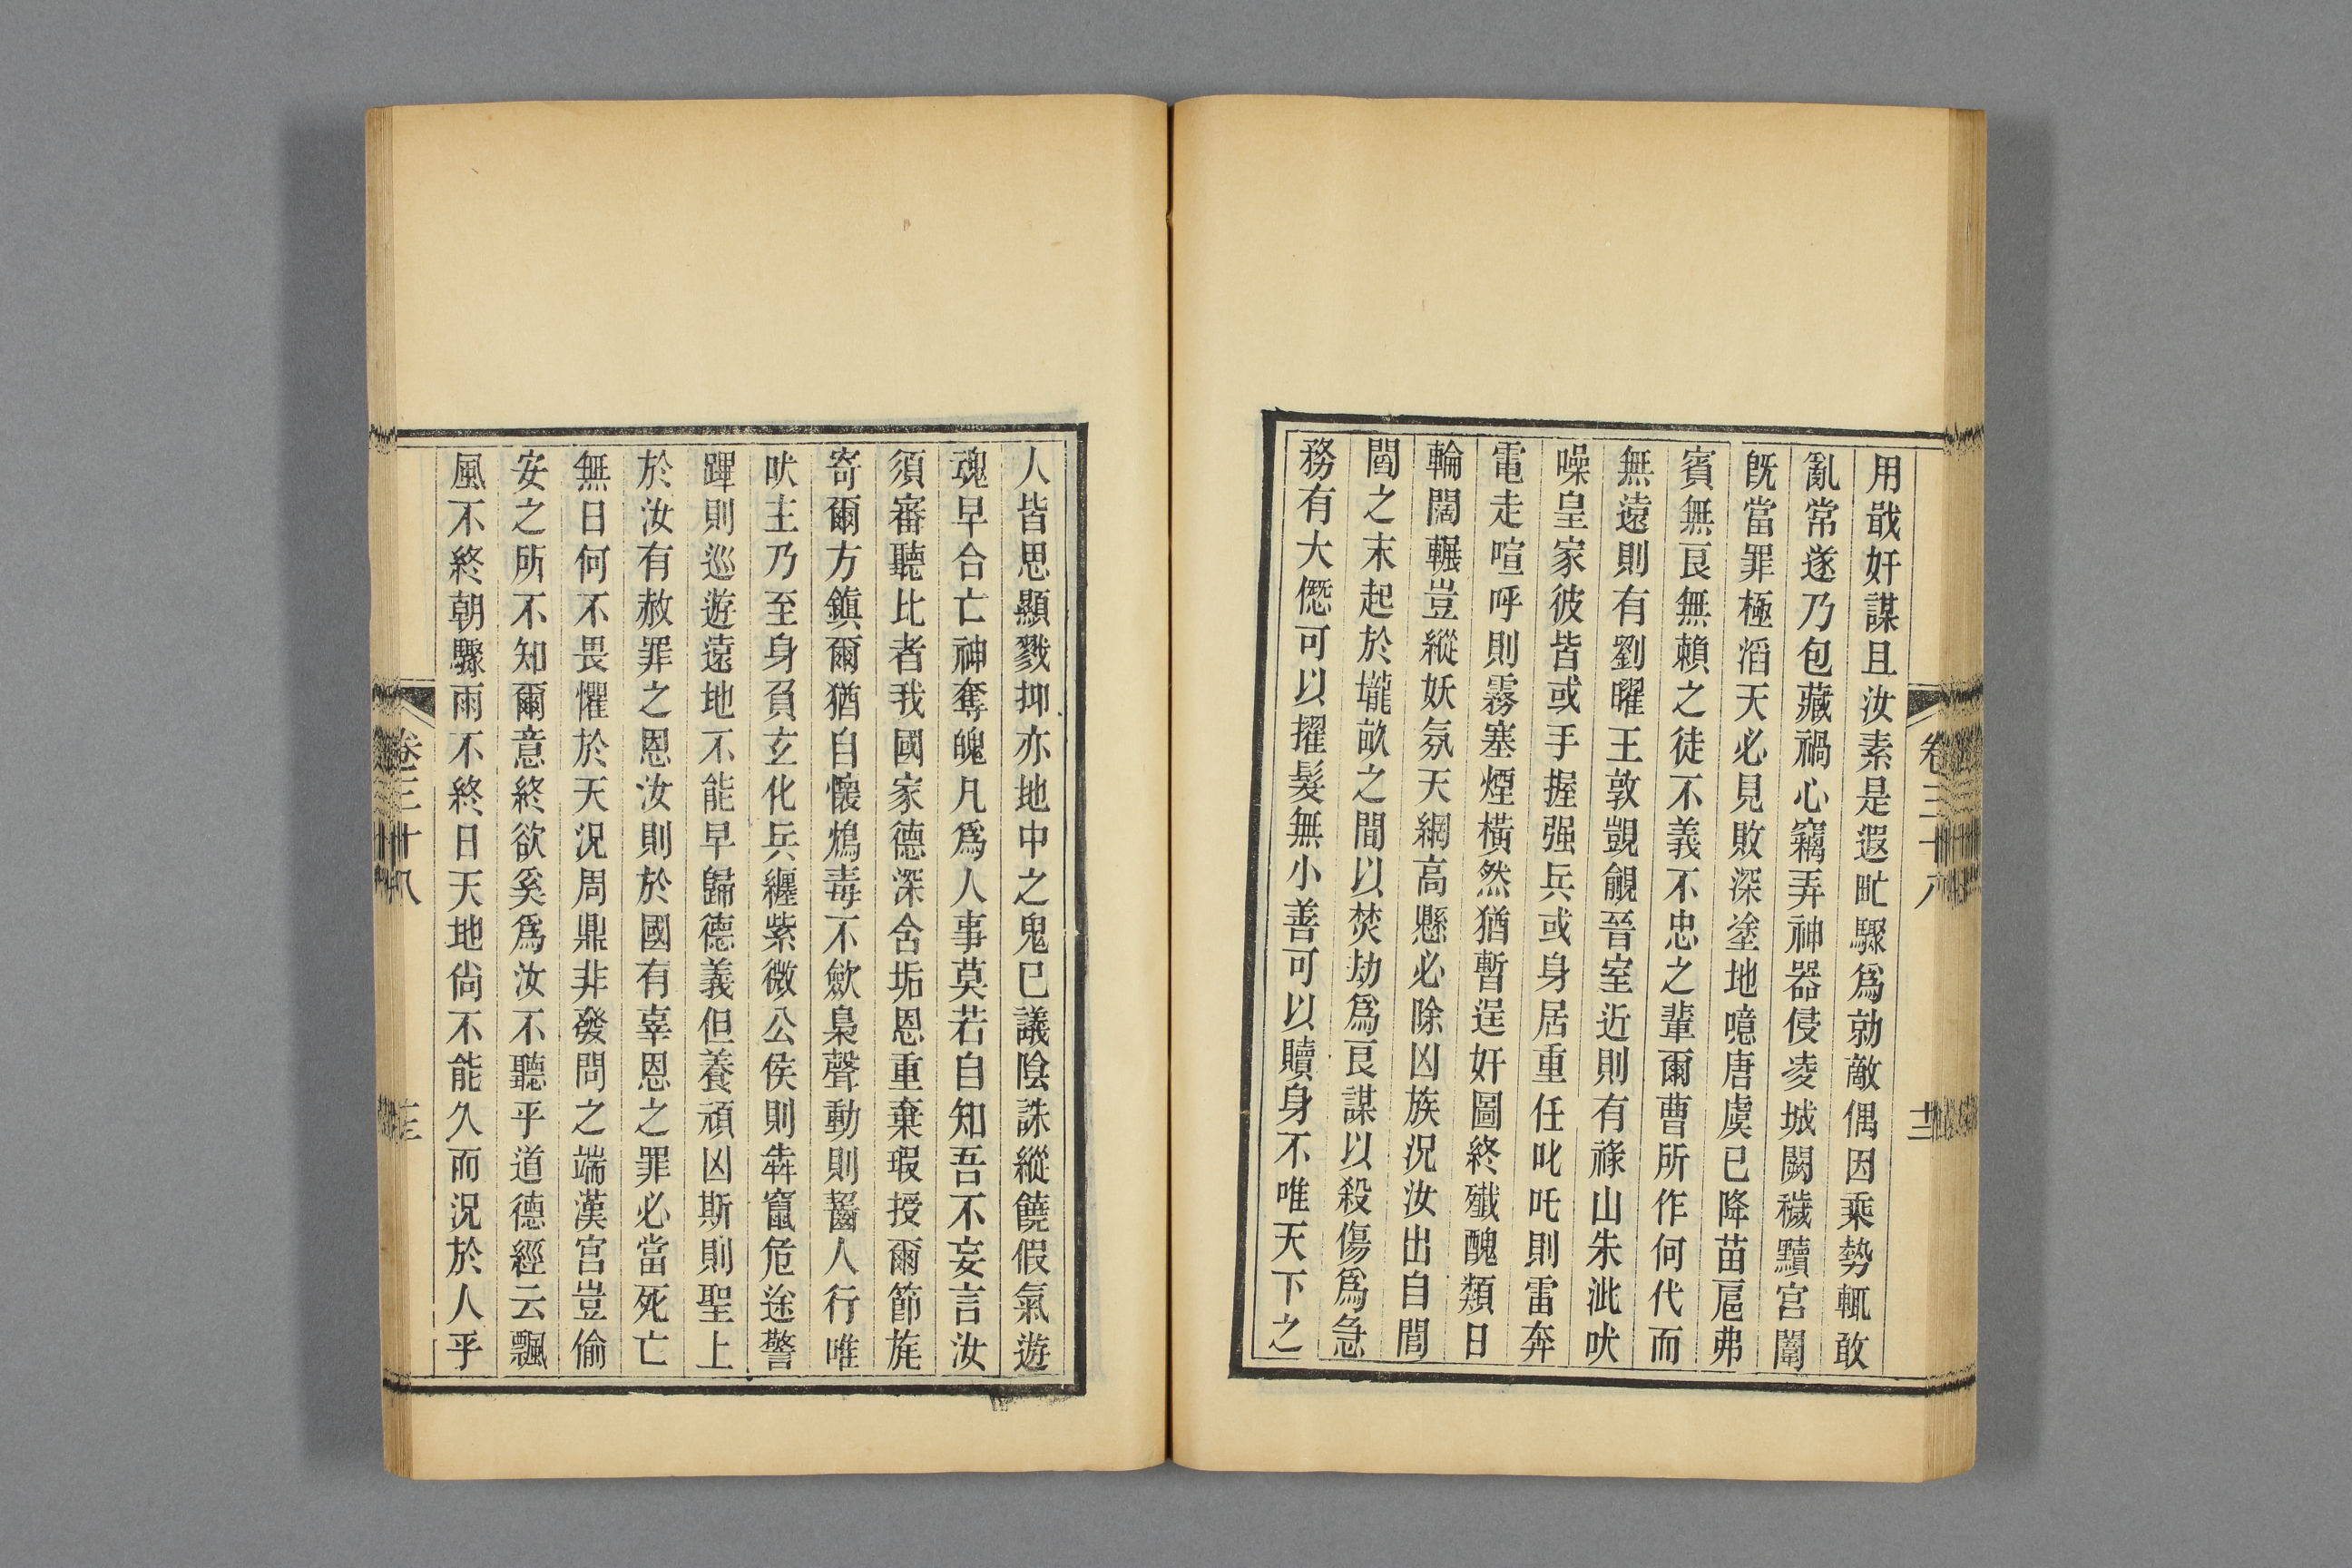 用戢奸謀且汝素是遐甿驟爲勍敵偶因乘勢輒敢
亂常遂乃包藏禍心竊弄神器侵凌城闕穢黷宮闈
旣當罪極滔天必見敗深塗地噫唐虞已降苗扈弗
賓無良無賴之徒不義不忠之輩爾曹所作何代而
無遠則有劉曜王敦覬覦晉室近則有祿山朱泚吠
噪皇家彼皆或手握强兵或身居重任叱吒則雷奔
電走喧呼則霧塞煙橫然猶暫逞奸圖終殲醜類日
輪闊輾豈縱妖氛天網高懸必除凶族況汝出自閭
閻之末起於壠畝之間以焚劫爲良謀以殺傷爲急
務有大僽可以擢髮無小善可以贖身不唯天下之
卷三十八
十二
人皆思顯戮抑亦地中之鬼已議陰誅縱饒假氣遊
魂早合亡神奪魄凡爲人事莫若自知吾不妄言汝
須審聽比者我國家德深含垢恩重棄瑕授爾節旄
寄爾方鎭爾猶自懷鴆毒不歛梟聲動則齧人行唯
吠主乃至身負玄化兵纏紫微公侯則犇竄危途警
蹕則巡遊遠地不能早歸德義但養頑凶斯則聖上
於汝有赦罪之恩汝則於國有辜恩之罪必當死亡
無日何不畏懼於天況周鼎非發問之端漢宮豈偷
安之所不知爾意終欲奚爲汝不聽乎道德經云飄
風不終朝驟雨不終日天地尙不能久而況於人乎
卷三十八
十三